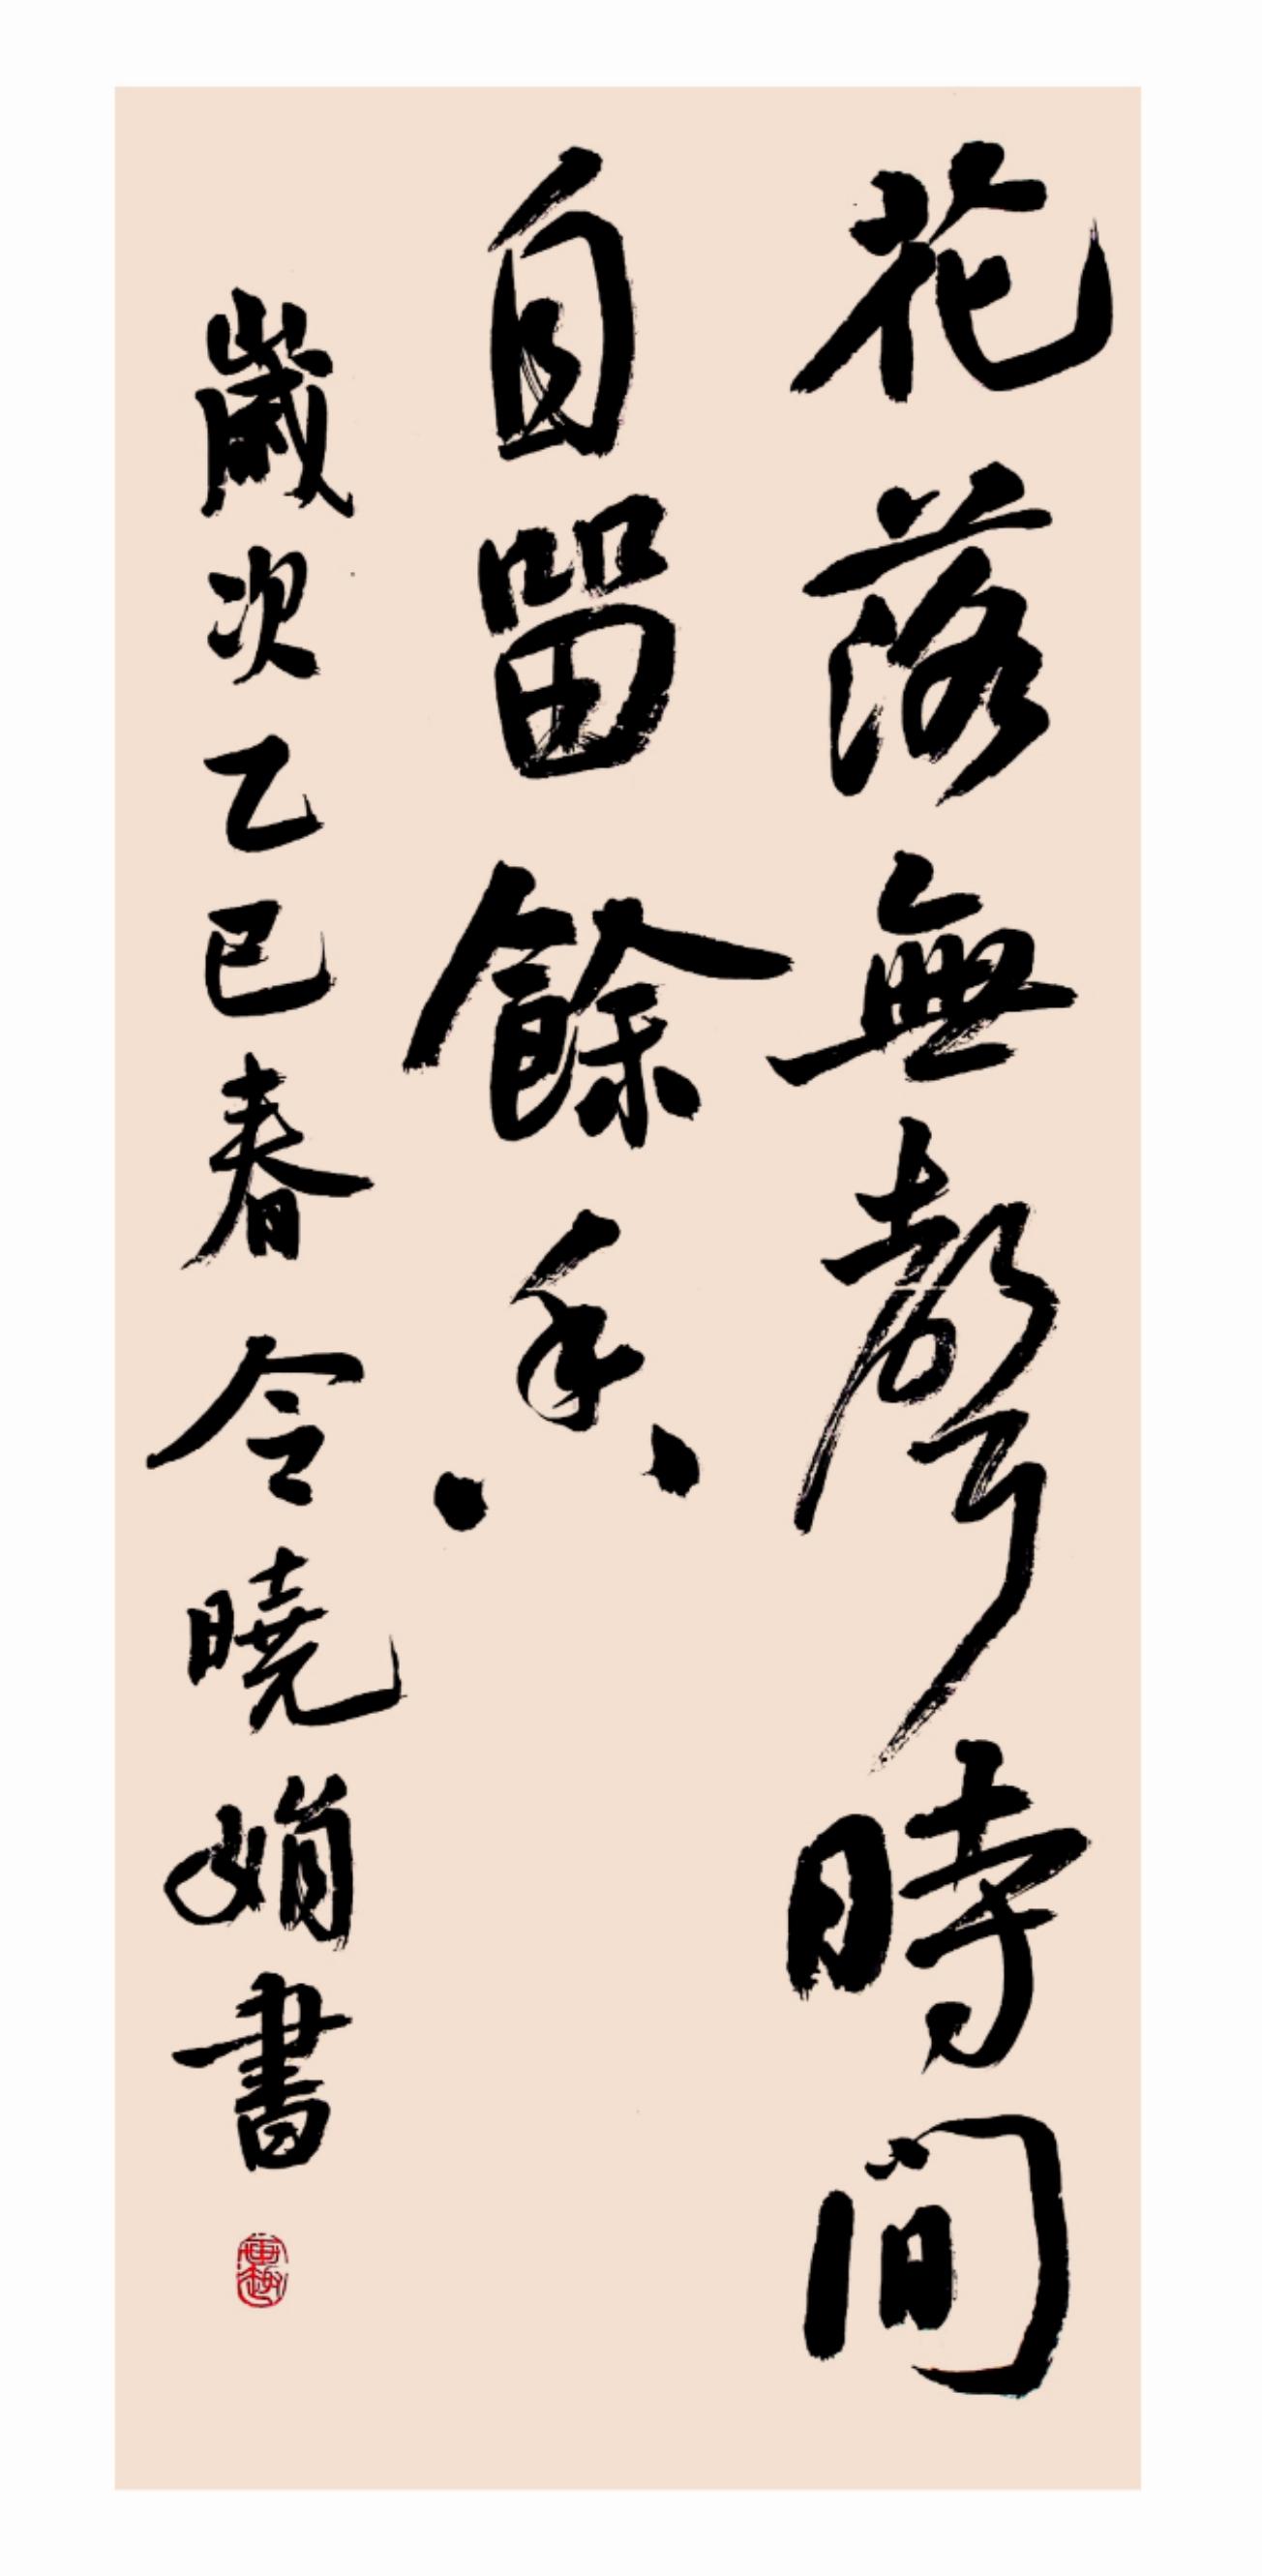 花落無聲時間
自留餘香
歲次乙巳春令曉娟書